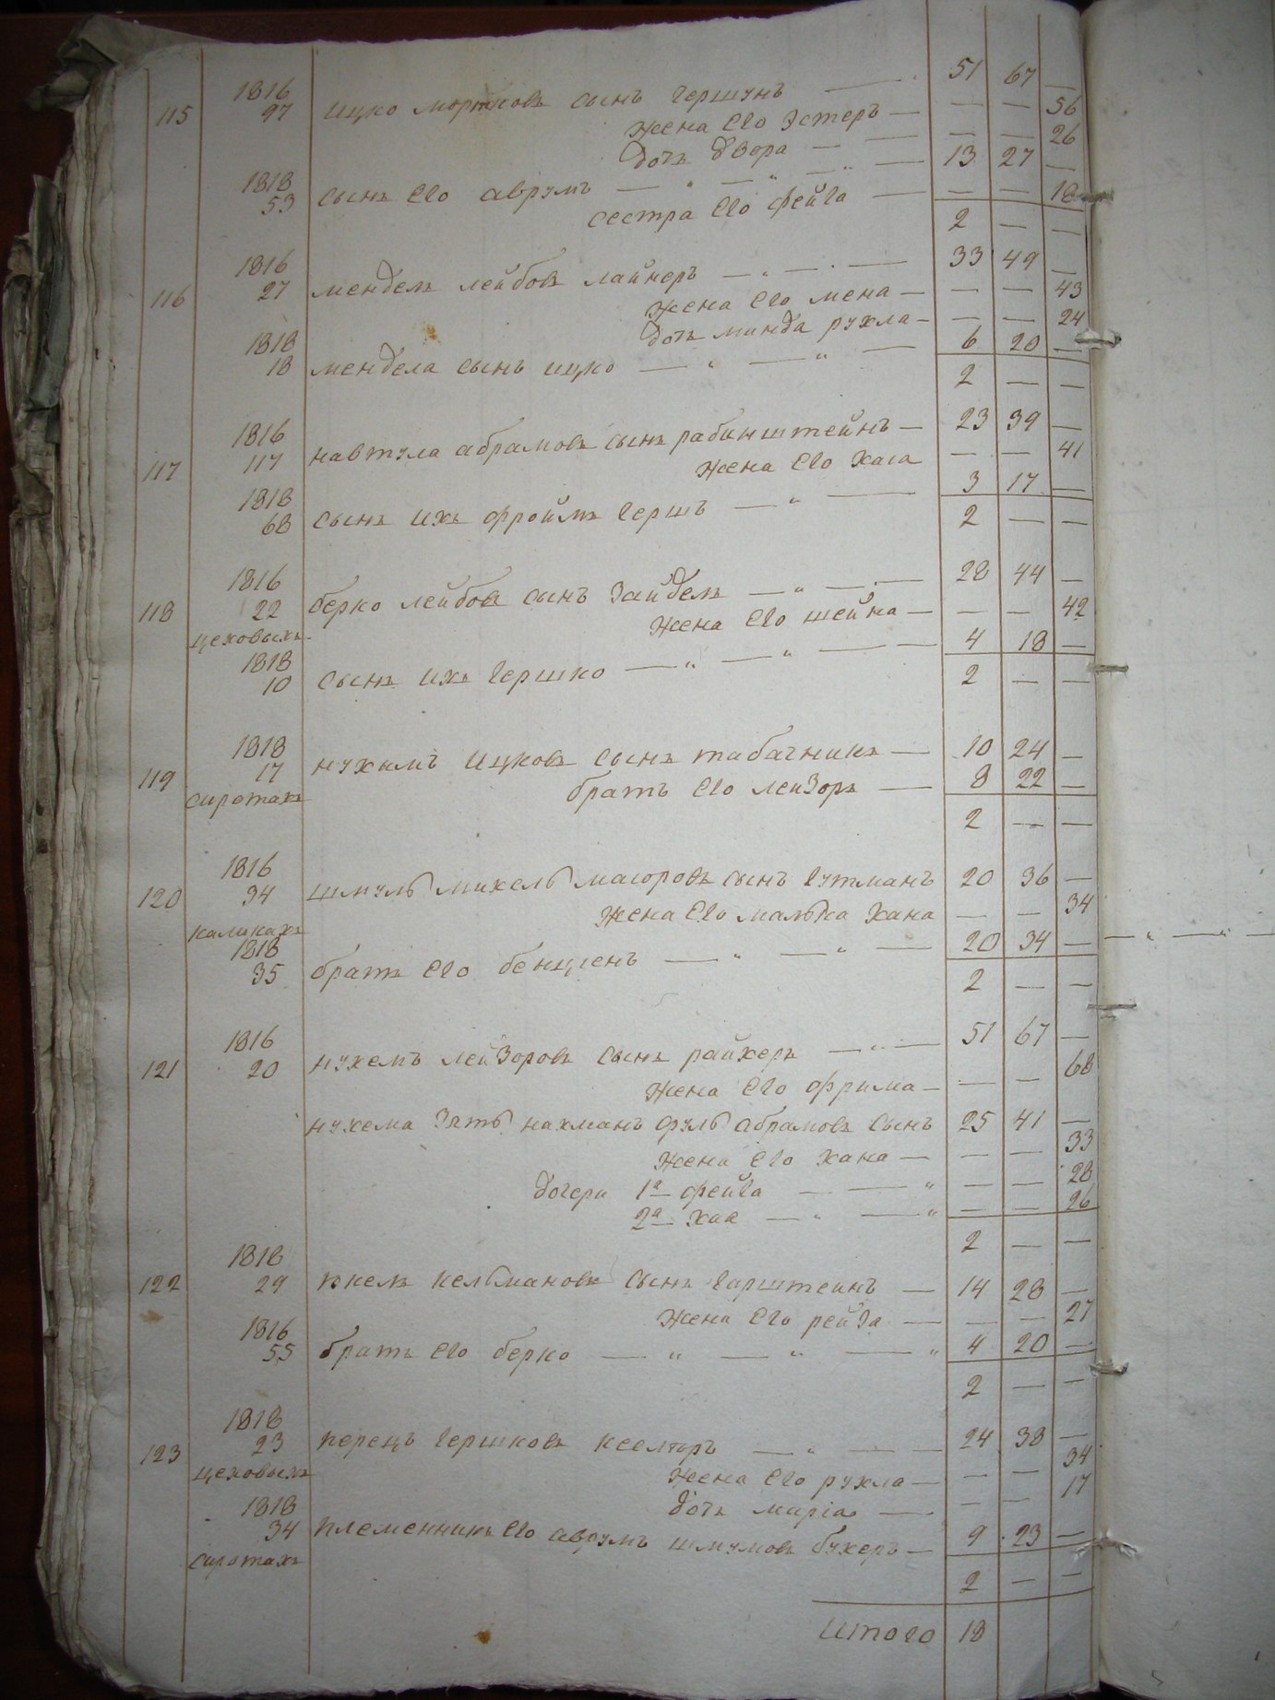 1816 51 67 —
115 97 ицко мортковъ сынъ гершунъ — — 56
жена его эстеръ — — — 26
дочь двора — 13 27 —
1818 53 сынъ его аврумъ — — — 18
сестра его фейга —
2 — —
1816 33 49 —
116 27 мендель лейбовъ лайнеръ — — 43
жена его мена — — — 24
1818 дочь минда рухла — 6 20 —
18 мендела сынъ ицко —
2 — —
1816 23 39 —
117 117 навтула абрамовъ сынъ рабинштейнъ — — — 41
жена его хаια 3 17 —
1818
68 сынъ ихъ фроймъ гершъ —
2 — —
1816 28 44 —
118 22 берко лейбовъ сынъ зайдель — — — 42
цеховыхъ жена его шейна — 4 18 —
1818
10 сынъ ихъ гершко —
2 — —
1818 10 24 —
119 17 нухымъ ицковъ сынъ табачникъ — 8 22 —
сиротахъ братъ его лейзоръ —
2 — —
1816
120 34 шмуль михель маіоровъ сынъ гутманъ 20 36 —
жена его малька хана — — 34
каликахъ
1818 20 34 —
35 братъ его бенціенъ —
2 — —
1816 51 67 —
121 20 нухемъ лейзоровъ сынъ райхеръ — — — 68
жена его фрима —
нухема зять нахманъ фуль абрамовъ сынъ 25 41 —
жена его хана — — — 33
дочери 1я фейга — — — 28
2я хая — — — 26
2 — —
1818
122 29 іокель кельмановъ сынъ гарштейнъ — 14 28 —
жена его рейза — — — 27
1816
55 братъ его берко — 4 20 —
2 — —
1818
123 23 перецъ гершковъ — 24 38 —
цеховыхъ жена его рухла — — — 34
1818 дочь маріа — — — 17
34 племенникъ его аврумъ шмулювъ бухеръ — 9 23 —
сиротахъ
2 — —
Итого 18